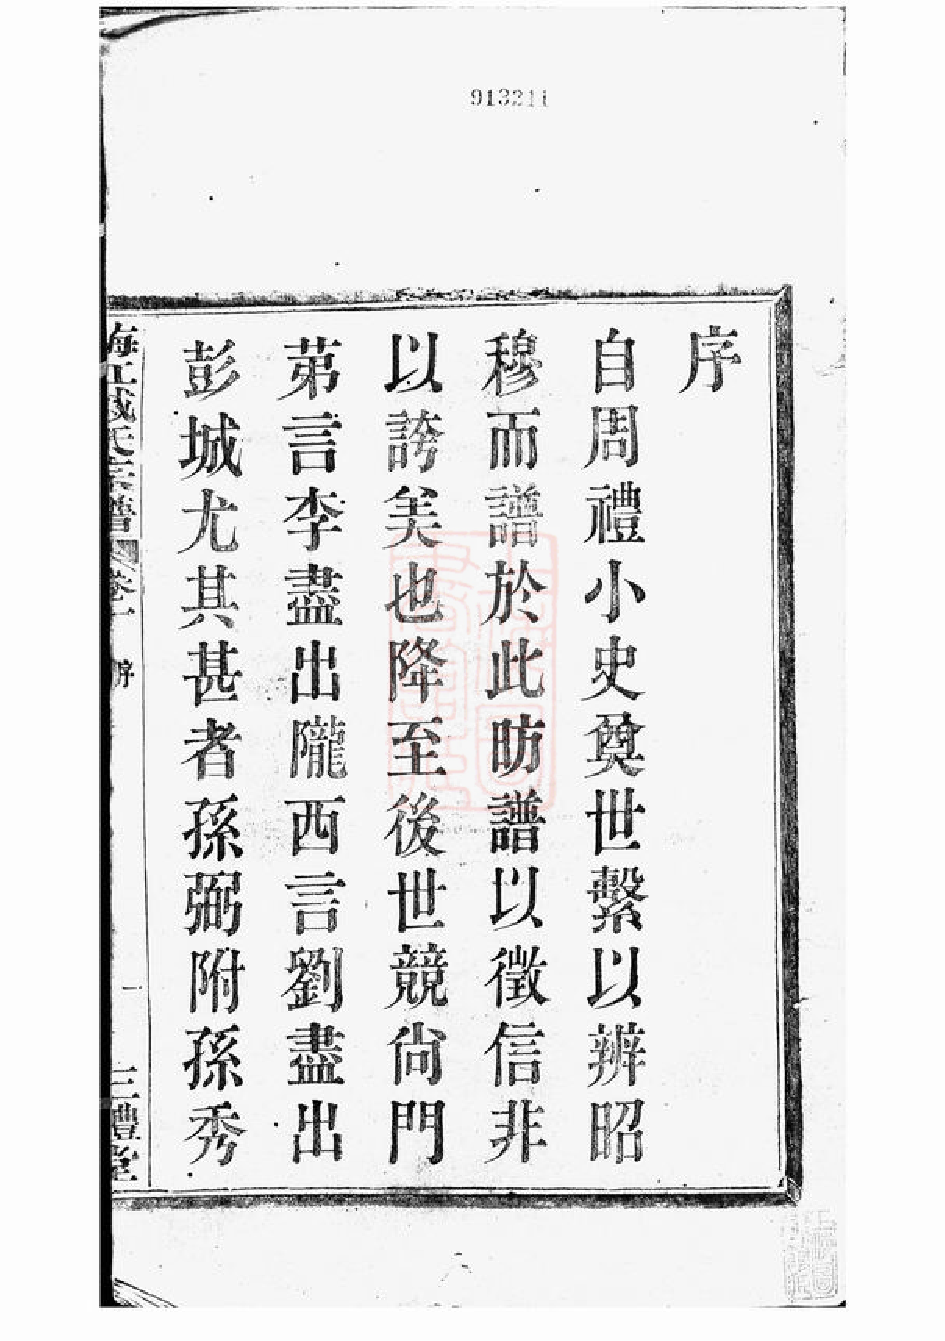 913211
序
自周禮小史奠世繫以辨昭
穆而譜於此昉譜以徵信非
以誇美也降至後世競尙門
苐言李盡出隴西言劉盡出
彭城尤其甚者孫弼附孫秀
梅江戚氏宗譜 卷一 序 一 三禮堂